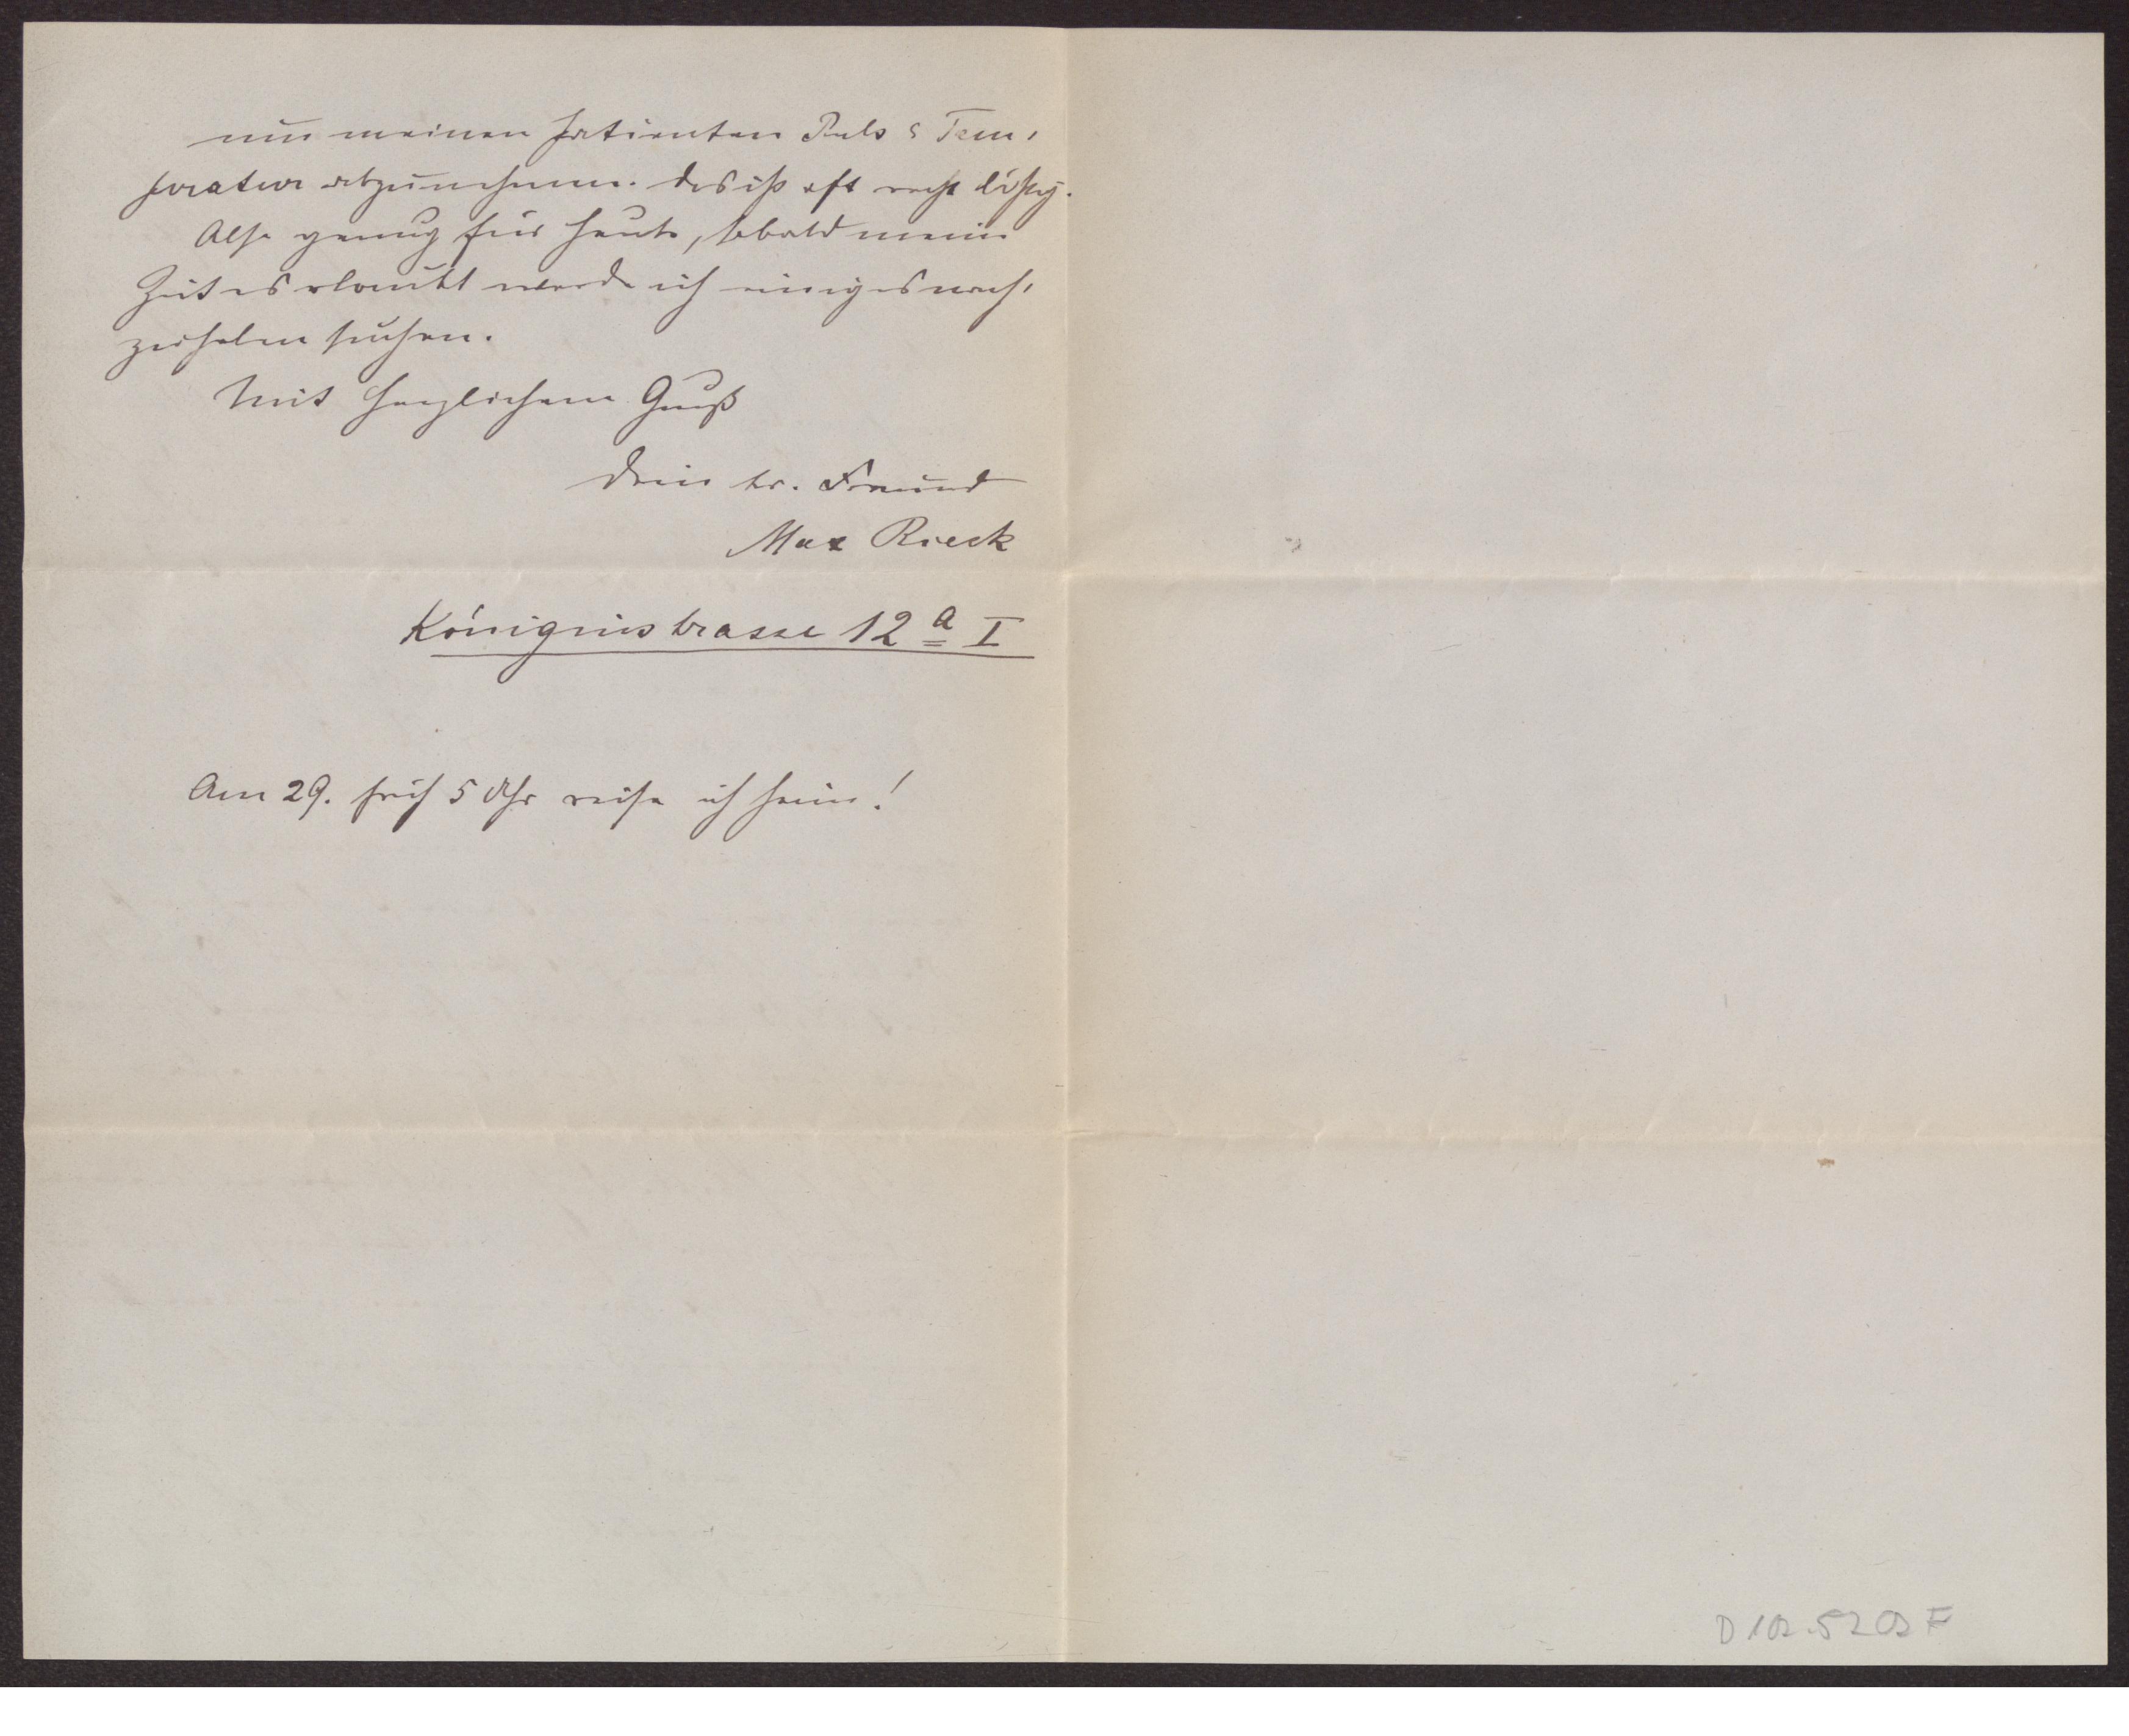 um meinen Patienten Puls & Tem-
peratur abzunehmen. Das ist oft recht lästig.
Also genug für heute, sobald meine
Zeit es erlaubt werde ich einiges nach-
zuholen suchen.
Mit herzlichem Gruß
Dein tr. Freund
Max Rieck
Königinstrasse 12 a I
Am 29. früh 5 Uhr reise ich heim!
D 102.5202 F